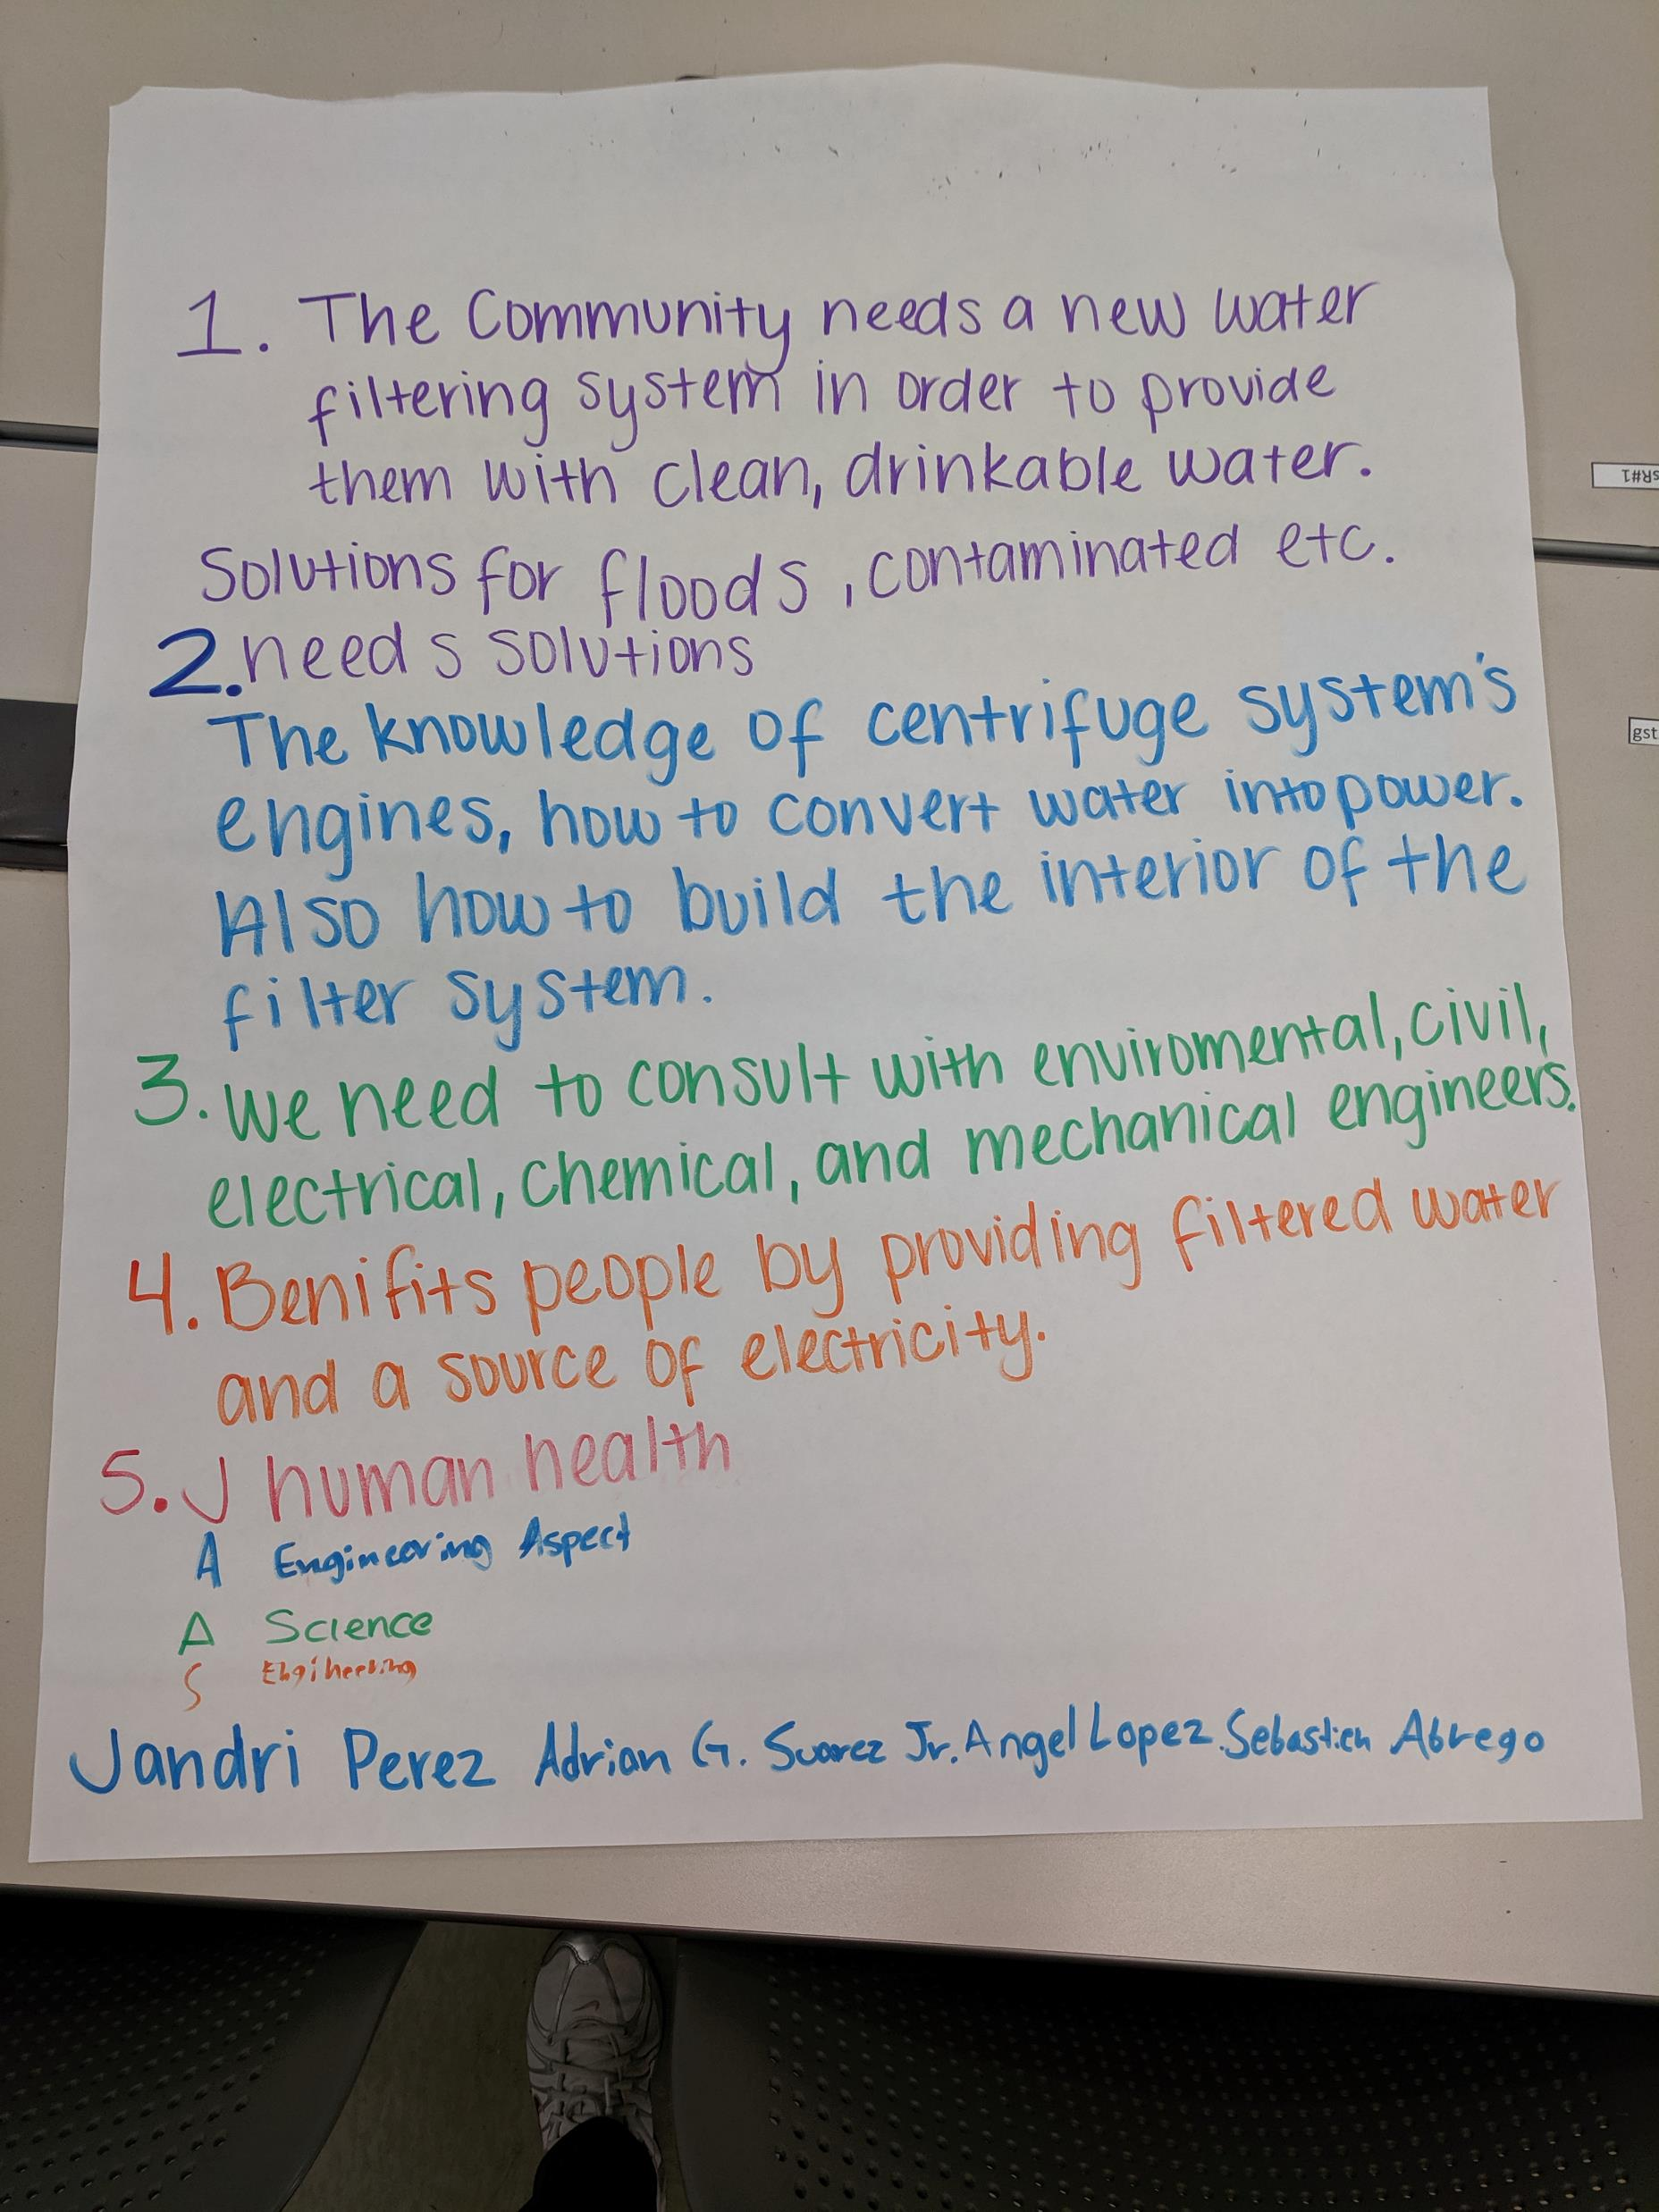 1. The Community needs a new water
filtering system in order to provide
them with clean, drinkable water.
Solutions for floods, contaminated etc.
2. needs solutions
The knowledge of centrifuge system's
engines, how to convert water into power.
Also how to build the interior of the
filter system.
3. We need to consult with enviromental, civil,
electrical, chemical, and mechanical engineers.
4. Benifits people by providing filtered water
and a source of electricity.
5. J human health
A Engineering Aspect
A Science
S Engineering
Jandri Perez Adrian G. Suarez Jr. Angel Lopez. Sebastien Abrego
SR#1
gst